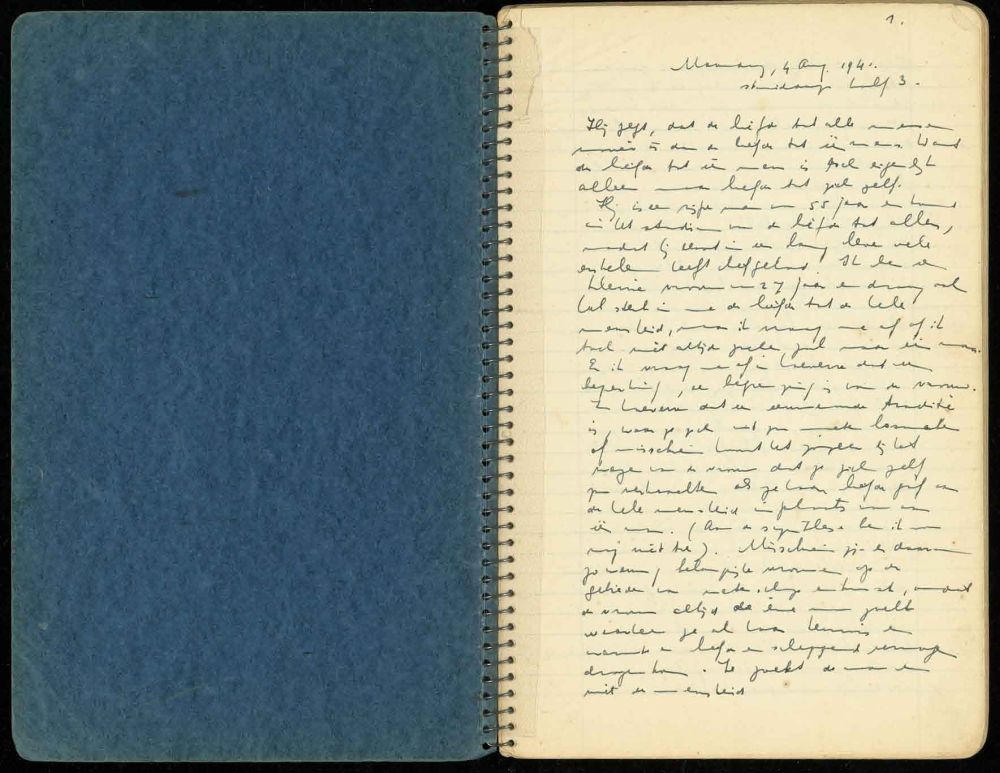 1.
Maandag, 4 Aug. 1941.
's middags half 3.
Hij zegt, dat de liefde tot alle mensen
mooier is dan de liefde tot één mens. Want
de liefde tot één mens is toch eigenlijk
alleen maar liefde tot zich zelf.
Hij is een rijpe man van 55 jaar en komt
in het stadium van de liefde tot allen,
nadat hij eerst in een lang leven vele
enkelen heeft liefgehad. Ik ben een
kleine vrouw van 27 jaar en draag ook
heel sterk in me de liefde tot de hele
mensheid, maar ik vraag me af of ik
toch niet altijd zoeken zal naar één man.
En ik vraag me af in hoeverre dat een
beperking, een begrenzing is van de vrouw.
In hoeverre dat een eeuwenoude traditie
is, waar ze zich uit zou moeten losmaken
of misschien hoort het zozeer bij het
wezen van de vrouw dat ze zich zelf
zou verkrachten als ze haar liefde gaf aan
de hele mensheid in plaats van aan
één man. (Aan een synthese ben ik
nog niet toe). Misschien zijn er daarom
zo weinig belangrijke vrouwen op de
gebieden van wetenschap en kunst, omdat
de vrouw altijd de éne man zoekt
waarheen ze al haar kennis en
warmte en liefde en scheppend vermogen
dragen kan. Ze zoekt de man en
niet de mensheid